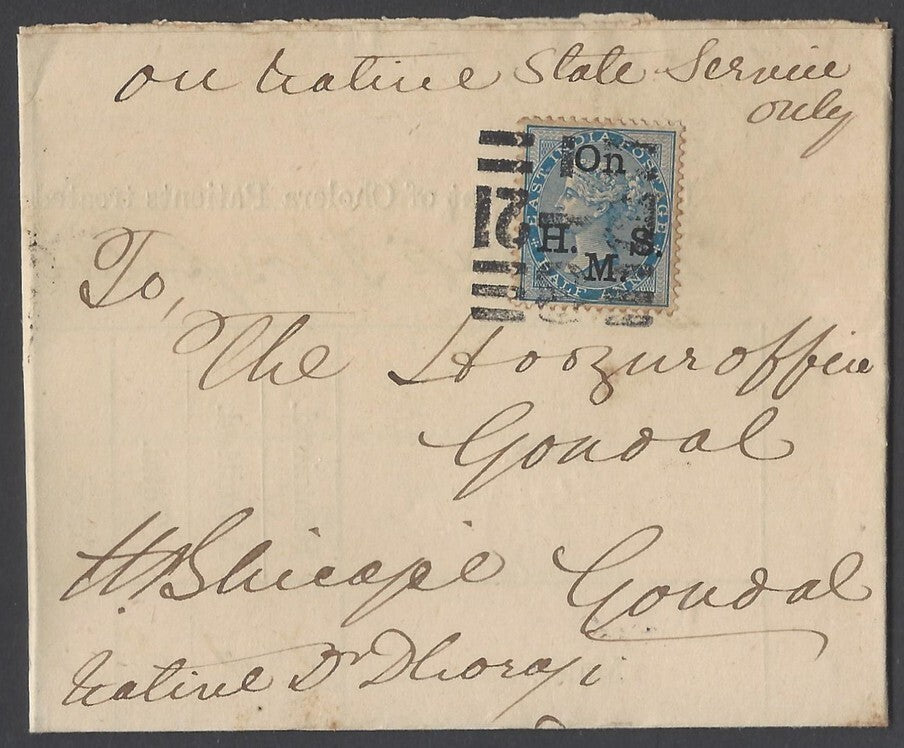 On Native State Service
only
EAST INDIA POSTAGE
On
H. S.
M.
HALF ANNA
21
of Cholera Patients treated
To,
The Hoozur office
Gondal
Gondal
Native Dr Dhoraji